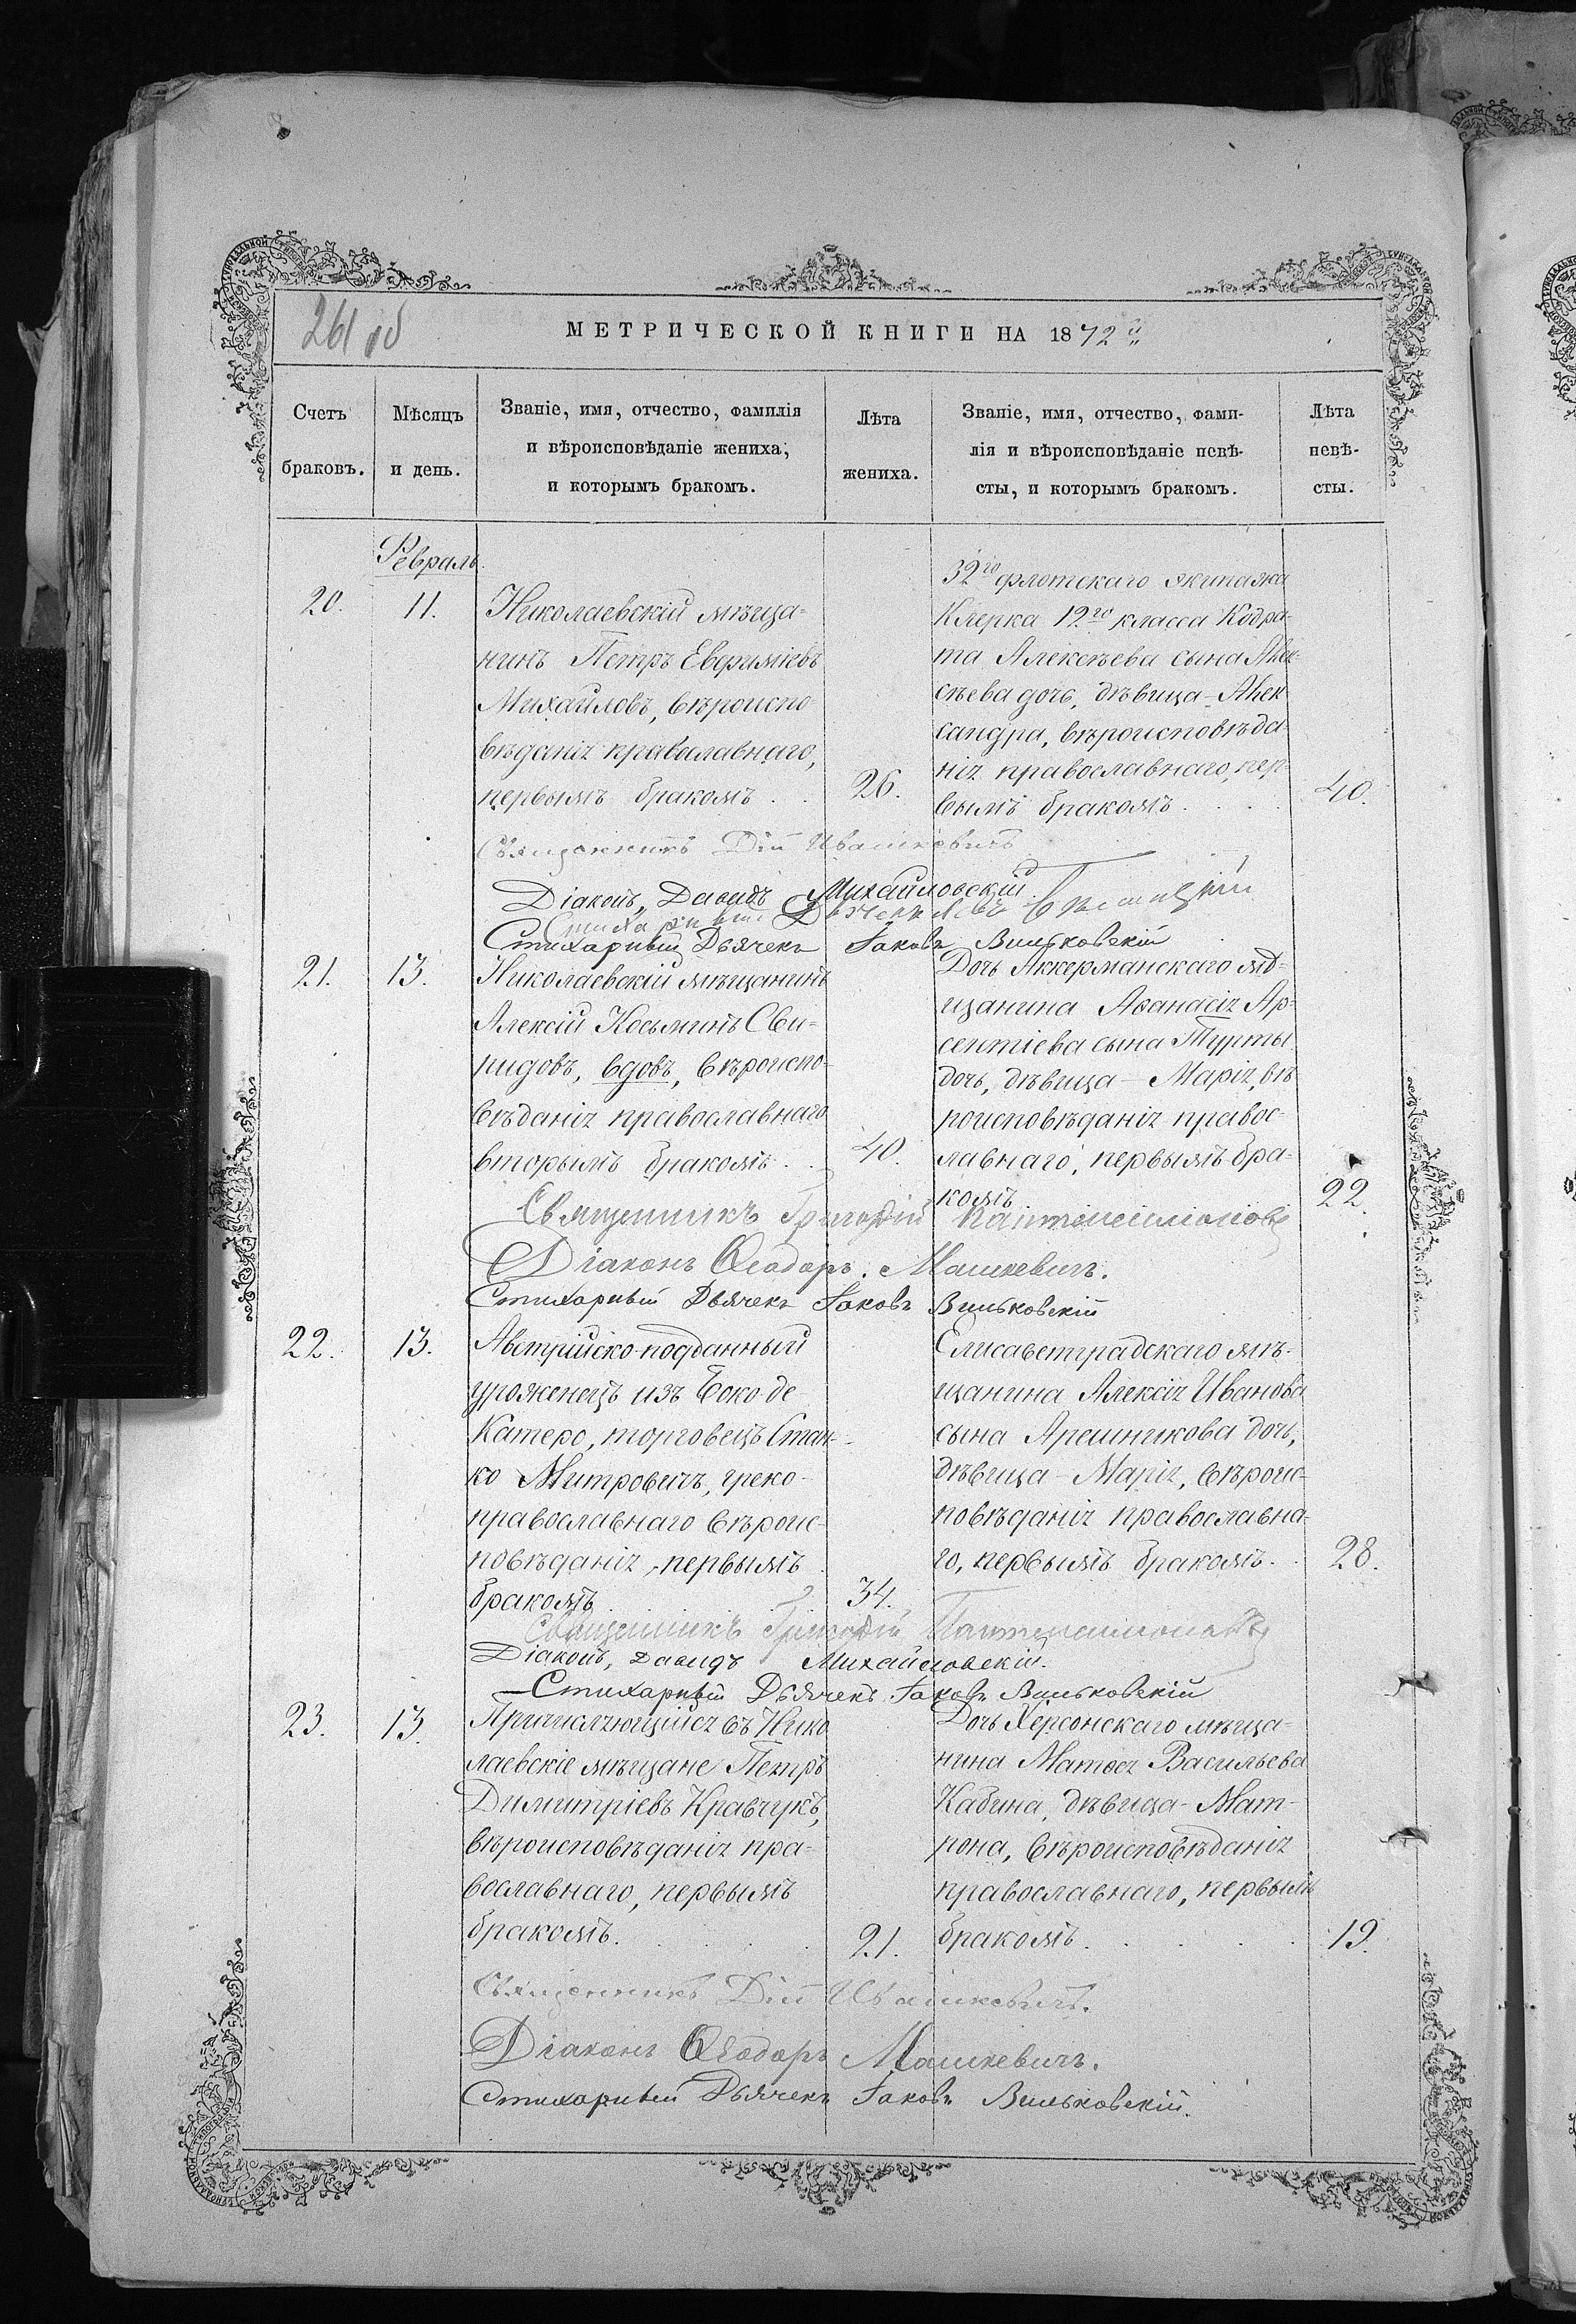 261 об
МЕТРИЧЕСКОЙ КНИГИ НА 1872
Счетъ браковъ.
Мѣсяцъ и день.
Званіе, имя, отчество, фамилія
и вѣроисповѣданіе жениха,
и которымъ бракомъ.
Лѣта жениха.
Званіе, имя, отчество, фами-
лія и вѣроисповѣданіе невѣ-
сты, и которымъ бракомъ.
Лѣта невѣ-
сты.
Февраль
20.
11.
Николаевскій мѣща-
нинъ Петръ Евфиміевъ
Михайловъ, вѣроиспо
вѣданія православнаго,
первымъ бракомъ
26.
32го флотскаго экипажа
Клерка 12го класса Кодра-
та Алексѣева сына Алек-
сѣева дочь, дѣвица Алек-
сандра, вѣроисповѣда-
нія православнаго, пер-
вымъ бракомъ
40.
Священникъ Дій Ивашкевичъ
Діаконъ, Давидъ Михайловскій
Стихарный
Стихарный Дьячекъ Іаковъ Вильковскій
21.
13.
Николаевскій мѣщанинъ
Алексій Косьминъ Сви-
ридовъ, вдовъ, вѣроиспо-
вѣданія православнаго
вторымъ бракомъ
40.
Дочь Аккерманскаго мѣ-
щанина Аѳанасія Ар-
сентіева сына Турты
дочь, дѣвица - Марія, вѣ
роисповѣданія правос-
лавнаго, первымъ бра-
комъ
22.
Священникъ Григорій Пантелеимоновъ
Діаконъ Ѳеодоръ Машкевичъ.
Стихарный Дьячекъ Іаковъ Вильковскій
22.
13.
Австрійско-подданный
уроженецъ изъ Боко-де-
Катеро, торговецъ Стан-
ко Митровичъ, греко-
православнаго вѣроис-
повѣданія, первымъ
бракомъ
34.
Елисаветградскаго мѣ-
щанина Алексія Иванова
сына Арешникова дочь,
дѣвица - Марія, вѣроис-
повѣданія православна-
го, первымъ бракомъ.
28.
Священникъ Григорій Пантелеимоновъ
Діаконъ, Давидъ Михайловскій.
Стихарный Дьячекъ Іаковъ Вильковскій
23.
13.
Причисляющійся въ Нико
лаевскіе мѣщане Петръ
Димитріевъ Кравчукъ,
вѣроисповѣданія пра-
вославнаго, первымъ
бракомъ.
21.
Дочь Херсонскаго мѣща-
нина Матѳея Васильева
Кабина, дѣвица - Мат-
рона, вѣроисповѣданія
православнаго, первымъ
бракомъ.
19.
Священникъ Дій Ивашкевичъ.
Діаконъ Ѳеодоръ Машкевичъ.
Стихарный Дьячекъ Іаковъ Вильковскій.